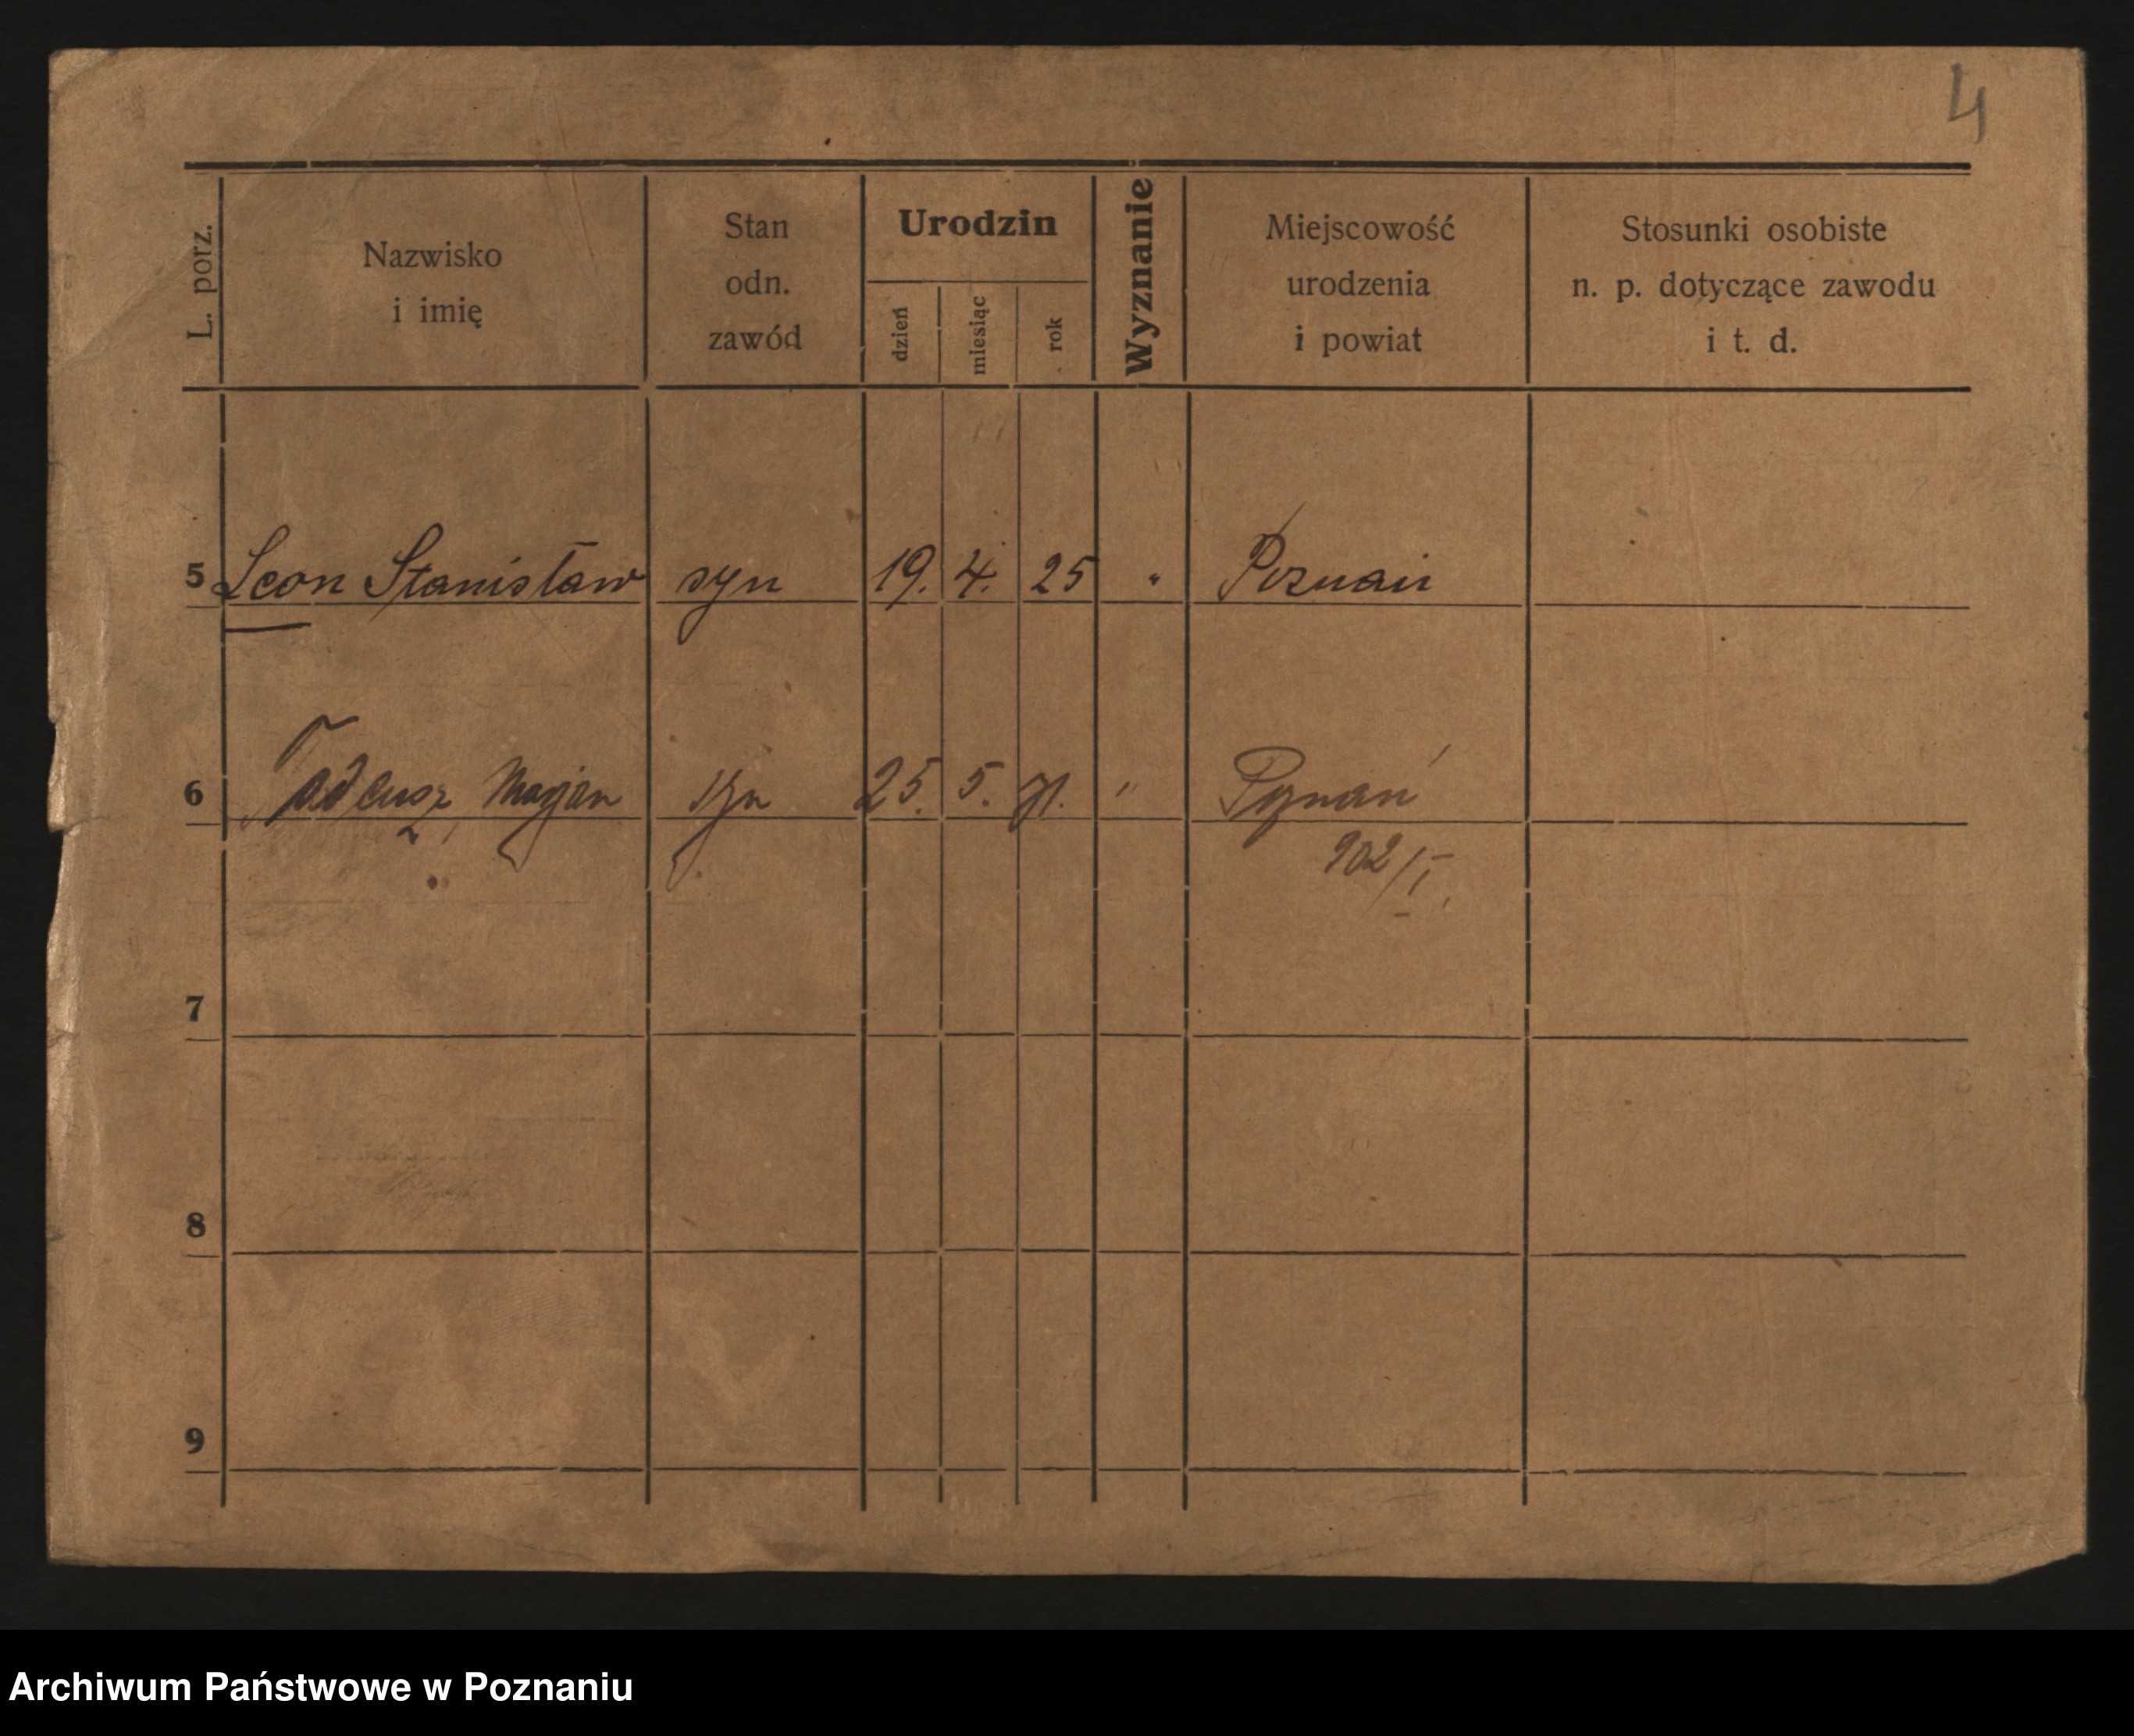 4
L. porz.
Nazwisko
i imię
Stan
odn.
zawód
Urodzin
dzień
miesiąc
rok
Wyznanie
Miejscowość
urodzenia
i powiat
Stosunki osobiste
n. p. dotyczące zawodu
i t. d.
5 Leon Stanisław syn 19. 4. 25 " Poznań
6 Tadeusz Marjan syn 25. 5. " Poznań
902/I.
7
8
9
Archiwum Państwowe w Poznaniu